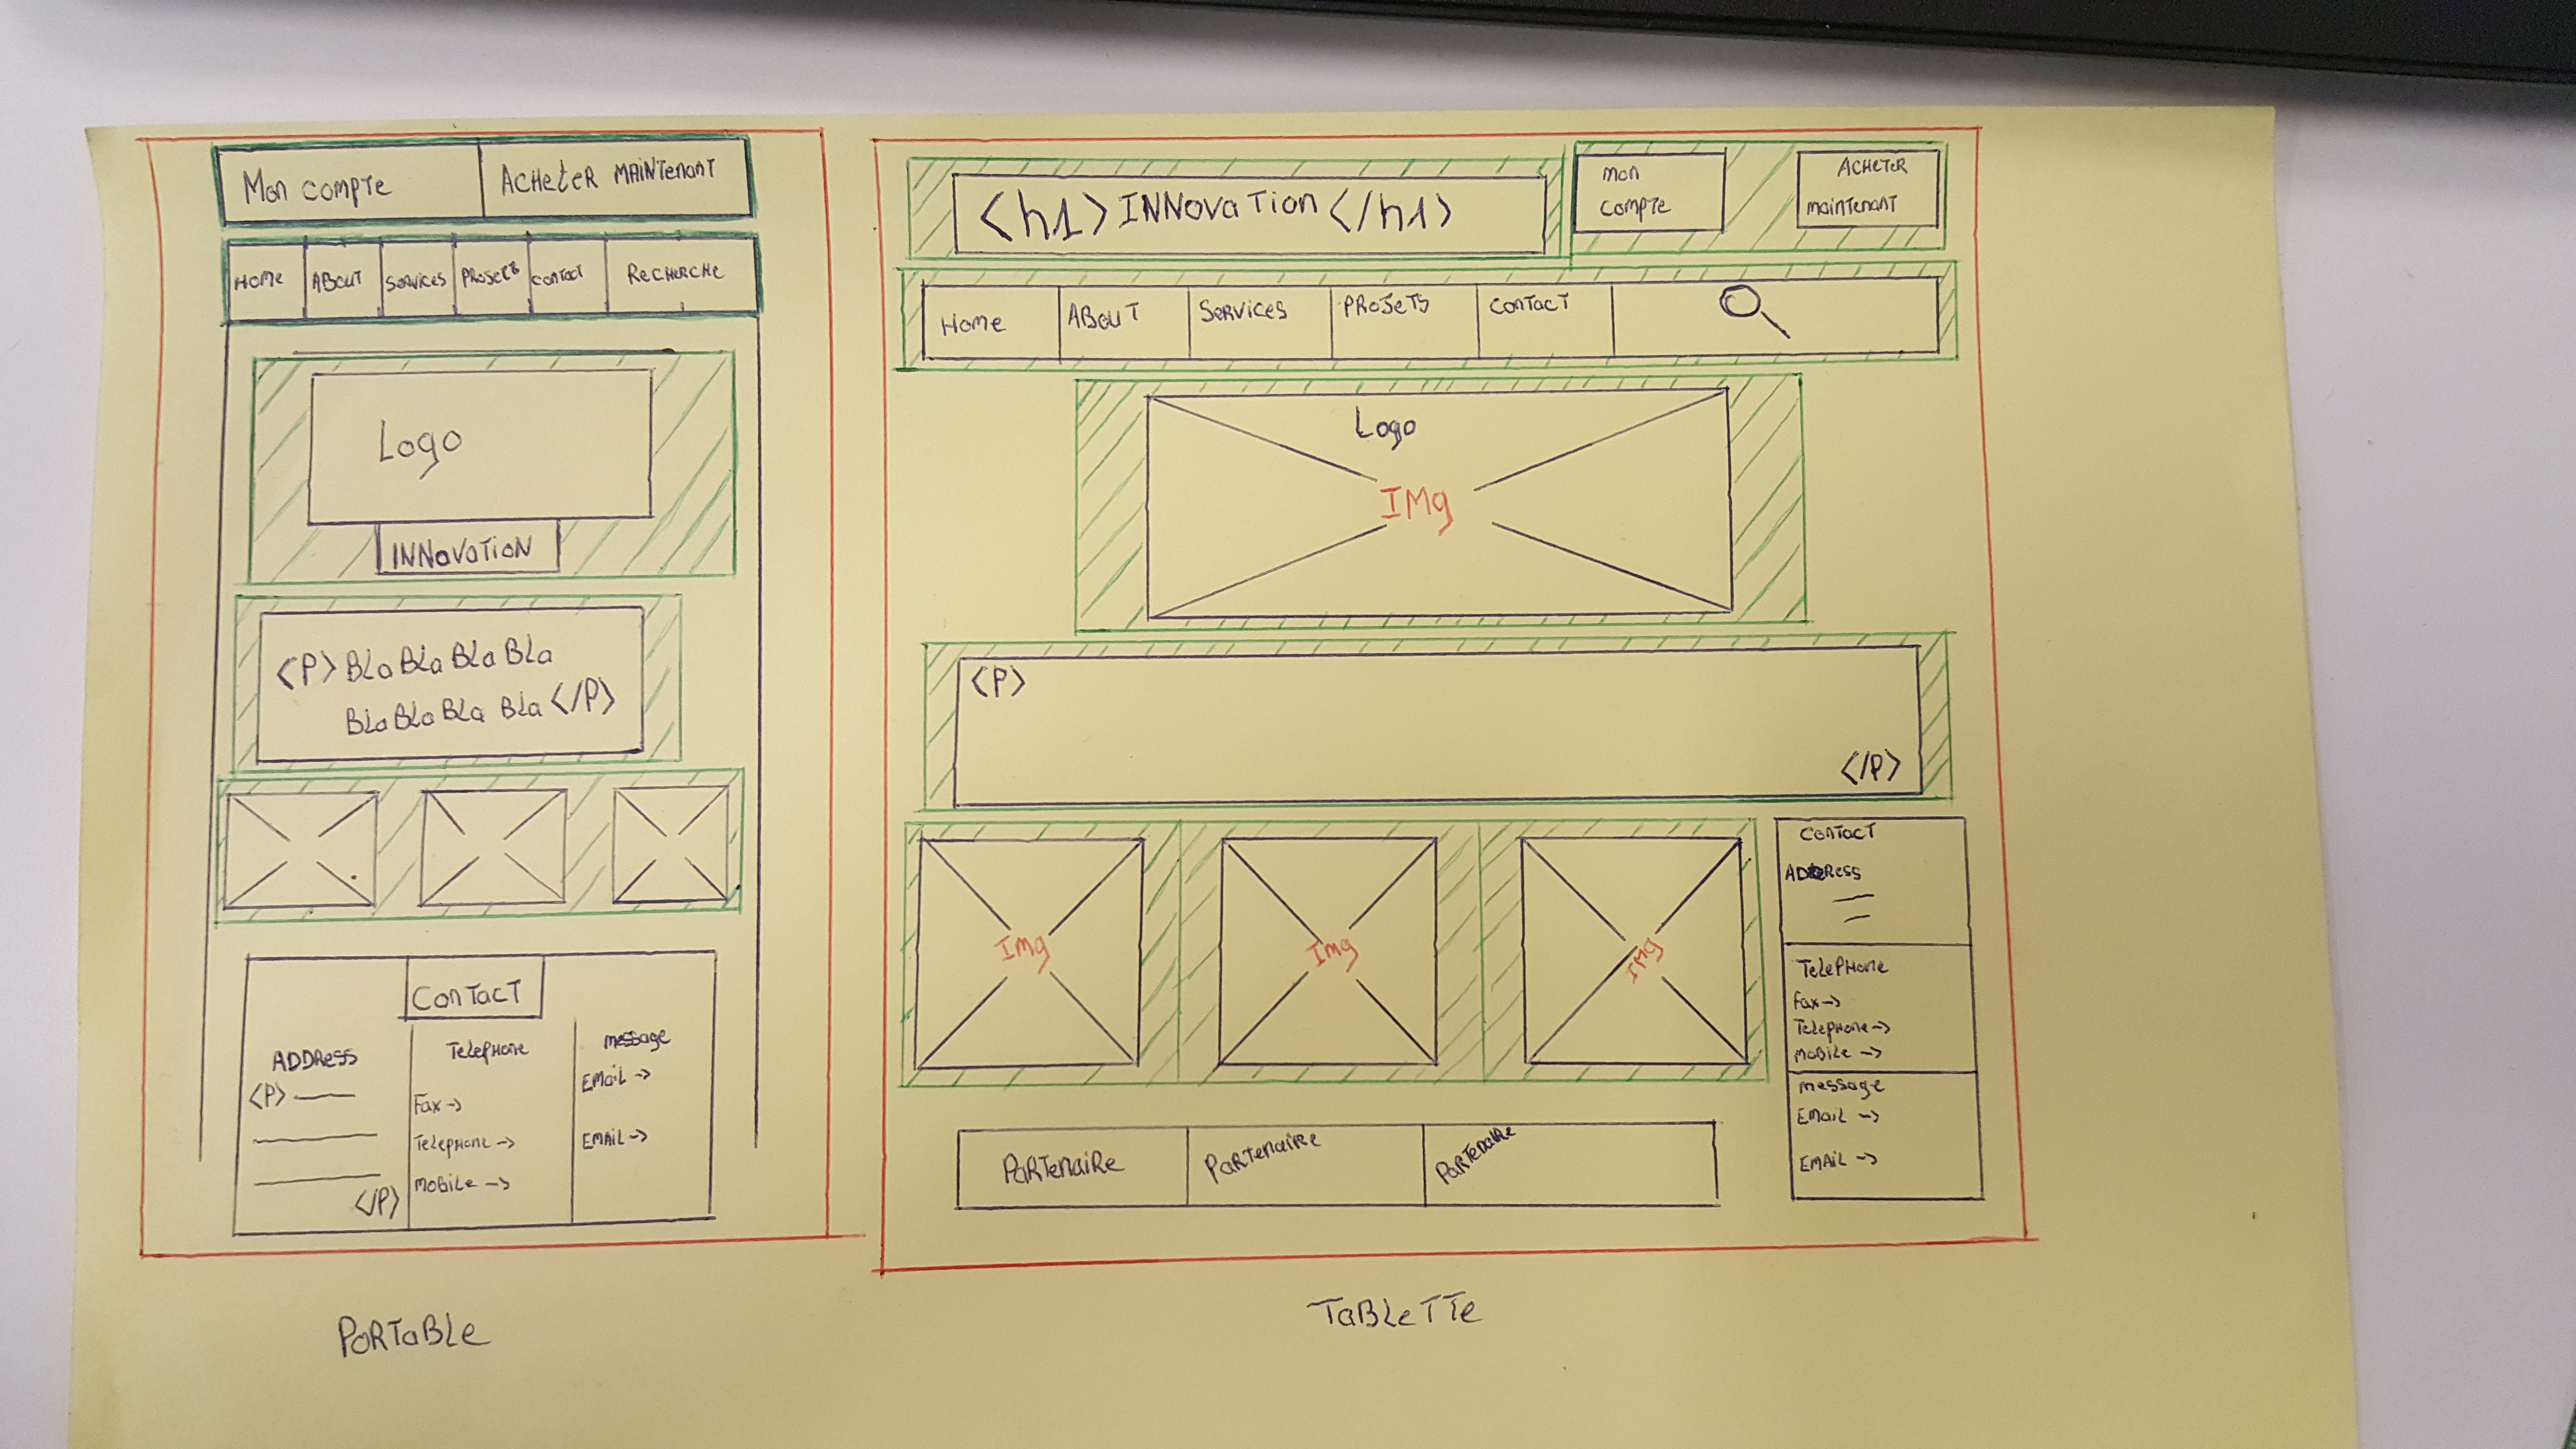 Mon compte
ACHeteR MAiNTenanT
Home
ABOUT
Services
PROJETS
contact
ReCHERCHe
Logo
INNovaTioN
<P> BLa BLa BLa BLa
BLa BLa BLa BLa </P>
ConTacT
ADDRess
<P>
</P>
TelePHone
Fax ->
TelePHone ->
moBiLe ->
message
EMaiL ->
EMAiL ->
PoRTaBLe
<h1> INNovaTion </h1>
mon
compTe
ACHeTeR
mainTenanT
Home
ABouT
SeRvices
PROJeTS
conTacT
Logo
IMg
<P>
</P>
Img
Img
IMg
conTacT
ADDRess
TelePHone
Fax ->
TelePHone ->
moBiLe ->
message
EMaiL ->
EMAiL ->
PaRTenaiRe
PaRTenaiRe
PaRTenaiRe
TaBLeTTe